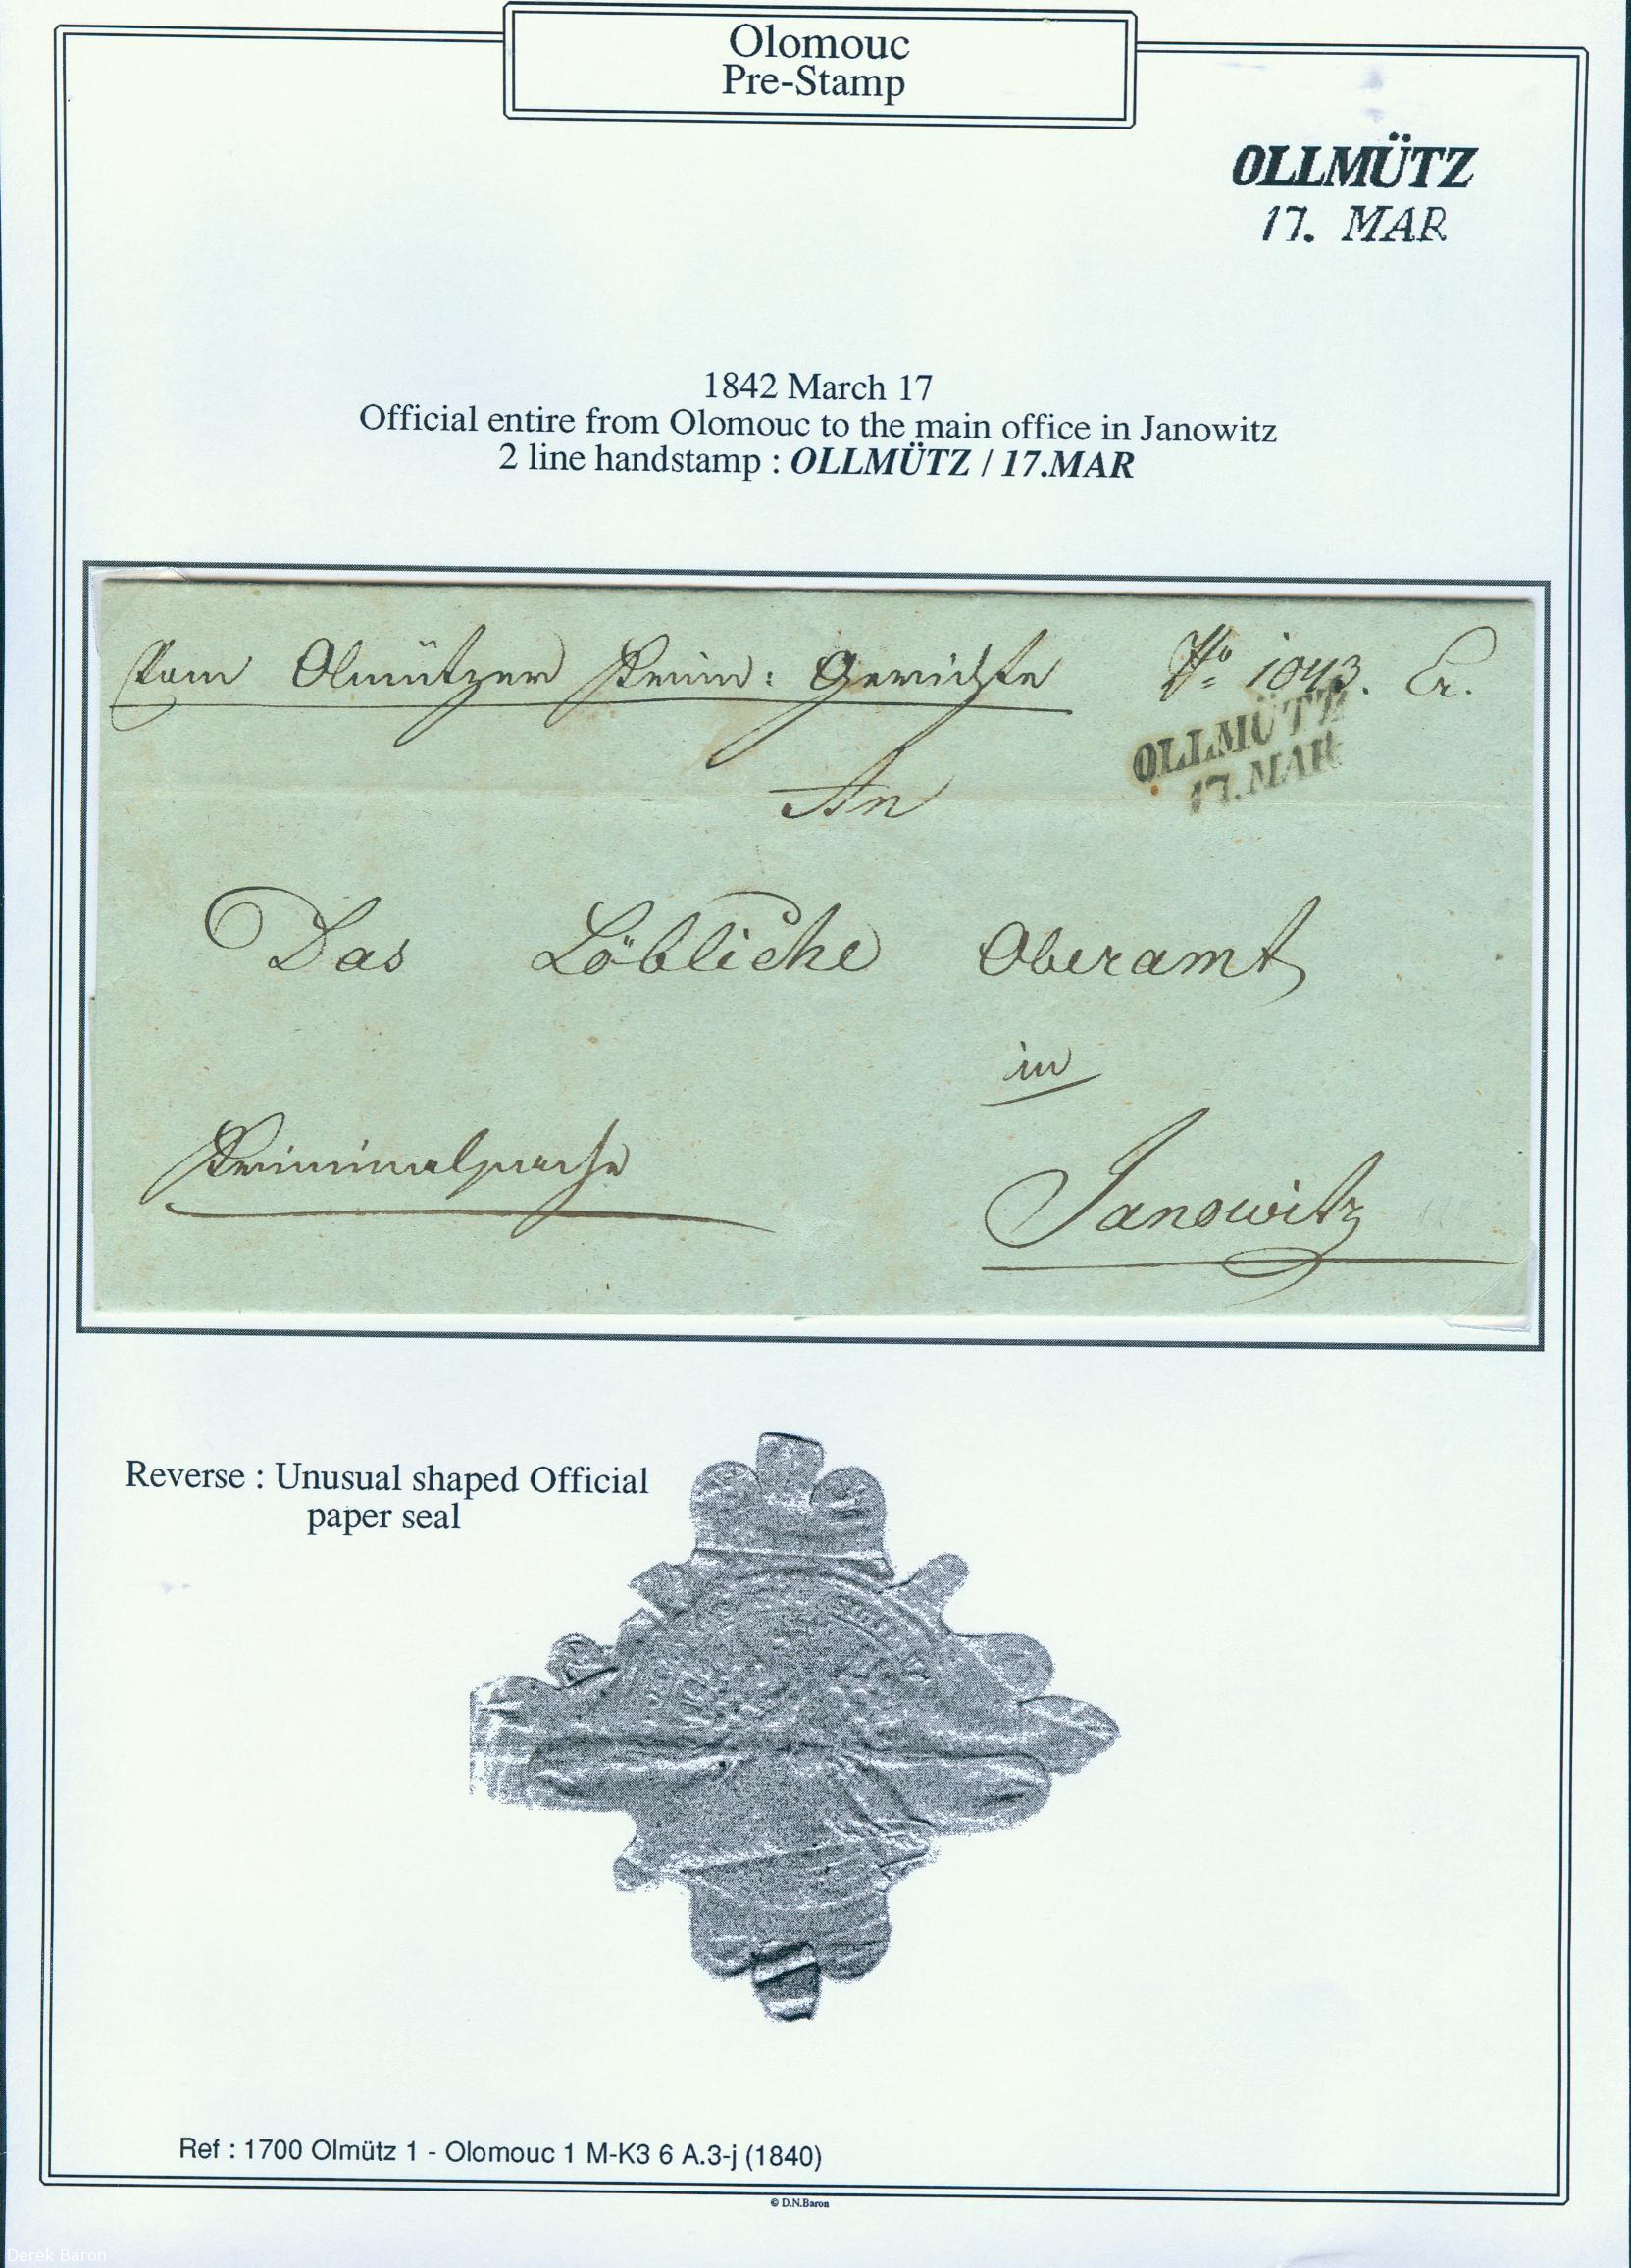 Olomouc
Pre-Stamp
OLLMÜTZ
17. MAR
1842 March 17
Official entire from Olomouc to the main office in Janowitz
2 line handstamp : OLLMÜTZ / 17.MAR
Vom Olmützer Krim: Gerichte No 1043. Er.
OLLMÜTZ
17.MAR
An
Das Löbliche Oberamt
in
Kriminalsache
Janowitz
Reverse : Unusual shaped Official
paper seal
Ref : 1700 Olmütz 1 - Olomouc 1 M-K3 6 A.3-j (1840)
© D.N.Baron
Derek Baron